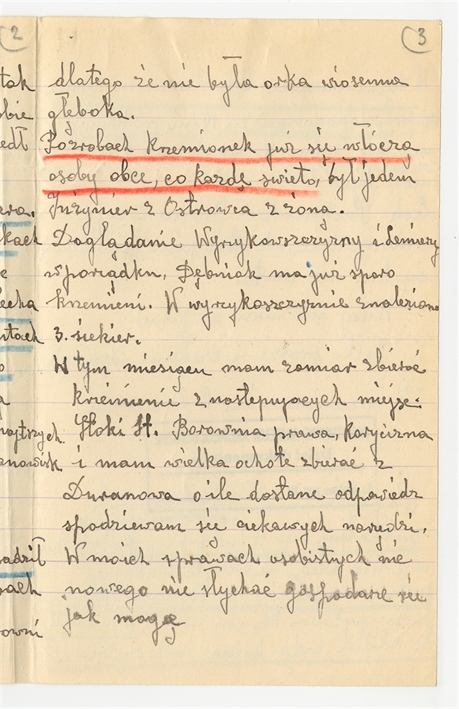 2
3
dlatego że nie była orka wiosenna
głęboka.
Po zrobach Krzemionek już się włóczą
osoby obce, co każdę swieto, był jeden
Inżynier z Ostrowca z żoną.
Doglądanie Wyrykowszczyzny i
w porządku, Dębniak ma już sporo
krzemieni. W wyrykoszczyznie znaleziono
3. siekier.
W tym miesiącu mam zamiar zbierać
krzemienie z nastepujących miejsc.
Stoki St. Borownia prawa, Korycizna
i mam wielka ochote zbierać z
Duranowa o ile dostane odpowiedz
spodziewam się ciekawych narzędzi.
W moich sprawach osobistych nic
nowego nie słychać gospodarze się
jak mogę